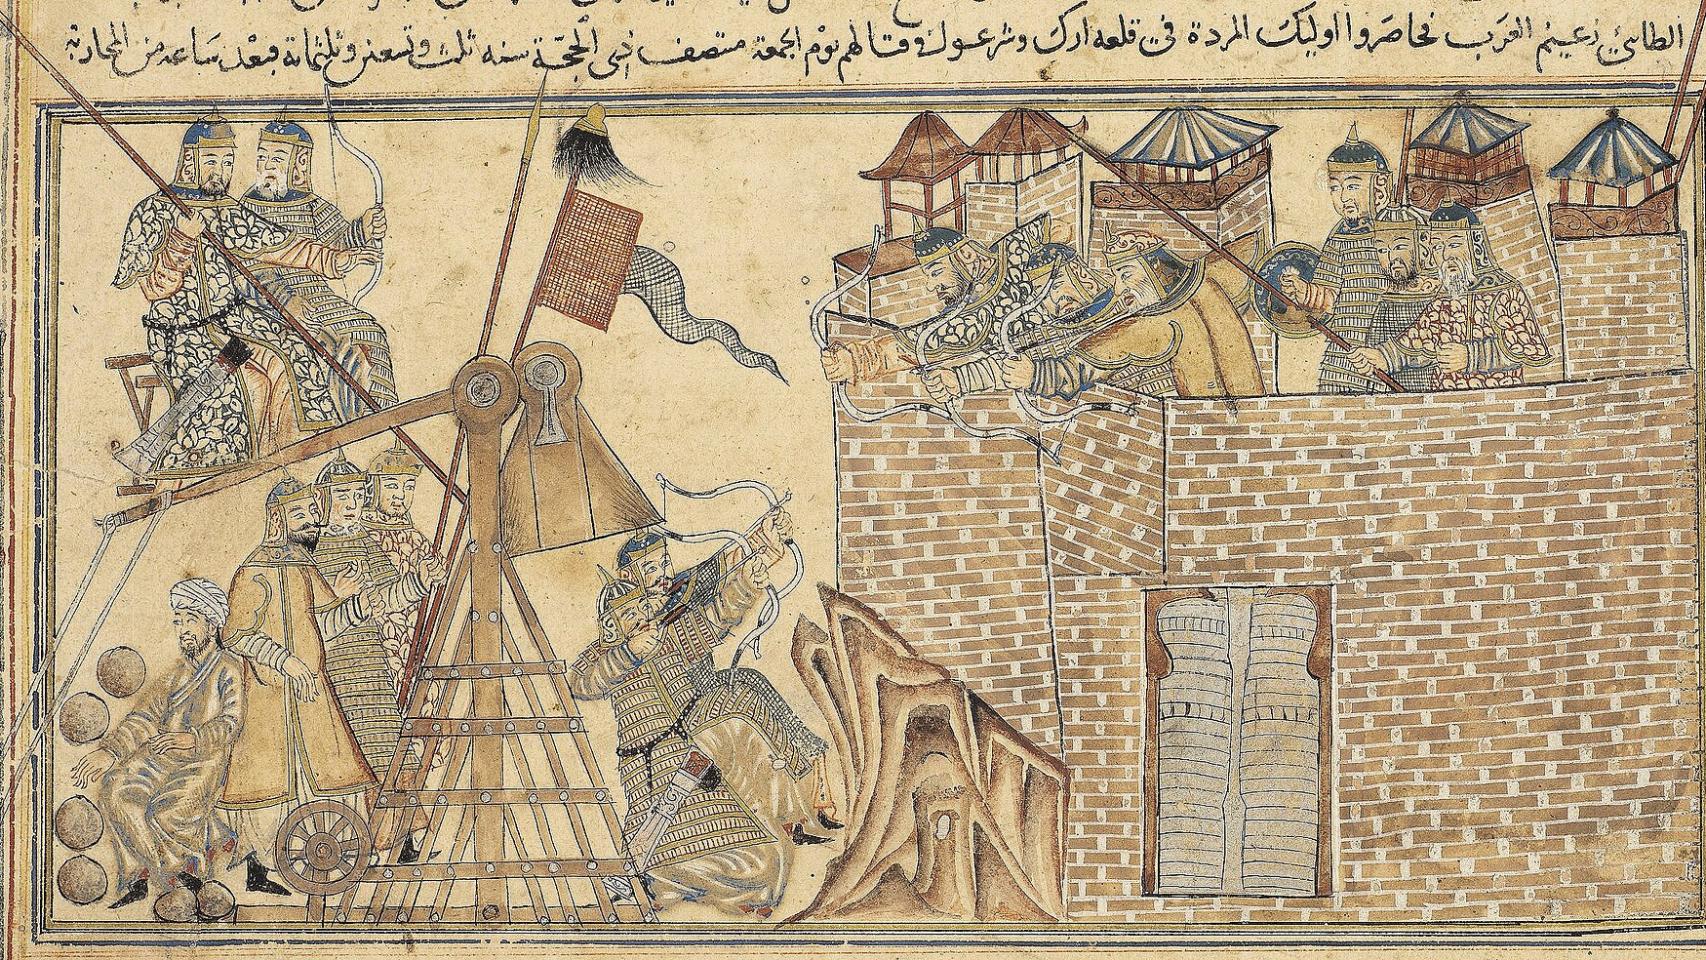 الطائي زعيم العرب فحاصروا اوليك المردة في قلعه ارك وشرعوا في قتالهم يوم الجمعة منتصف ذى الحجّة سنه ثلث وتسعين وثلثمائة فبعد ساعة من المحاربة